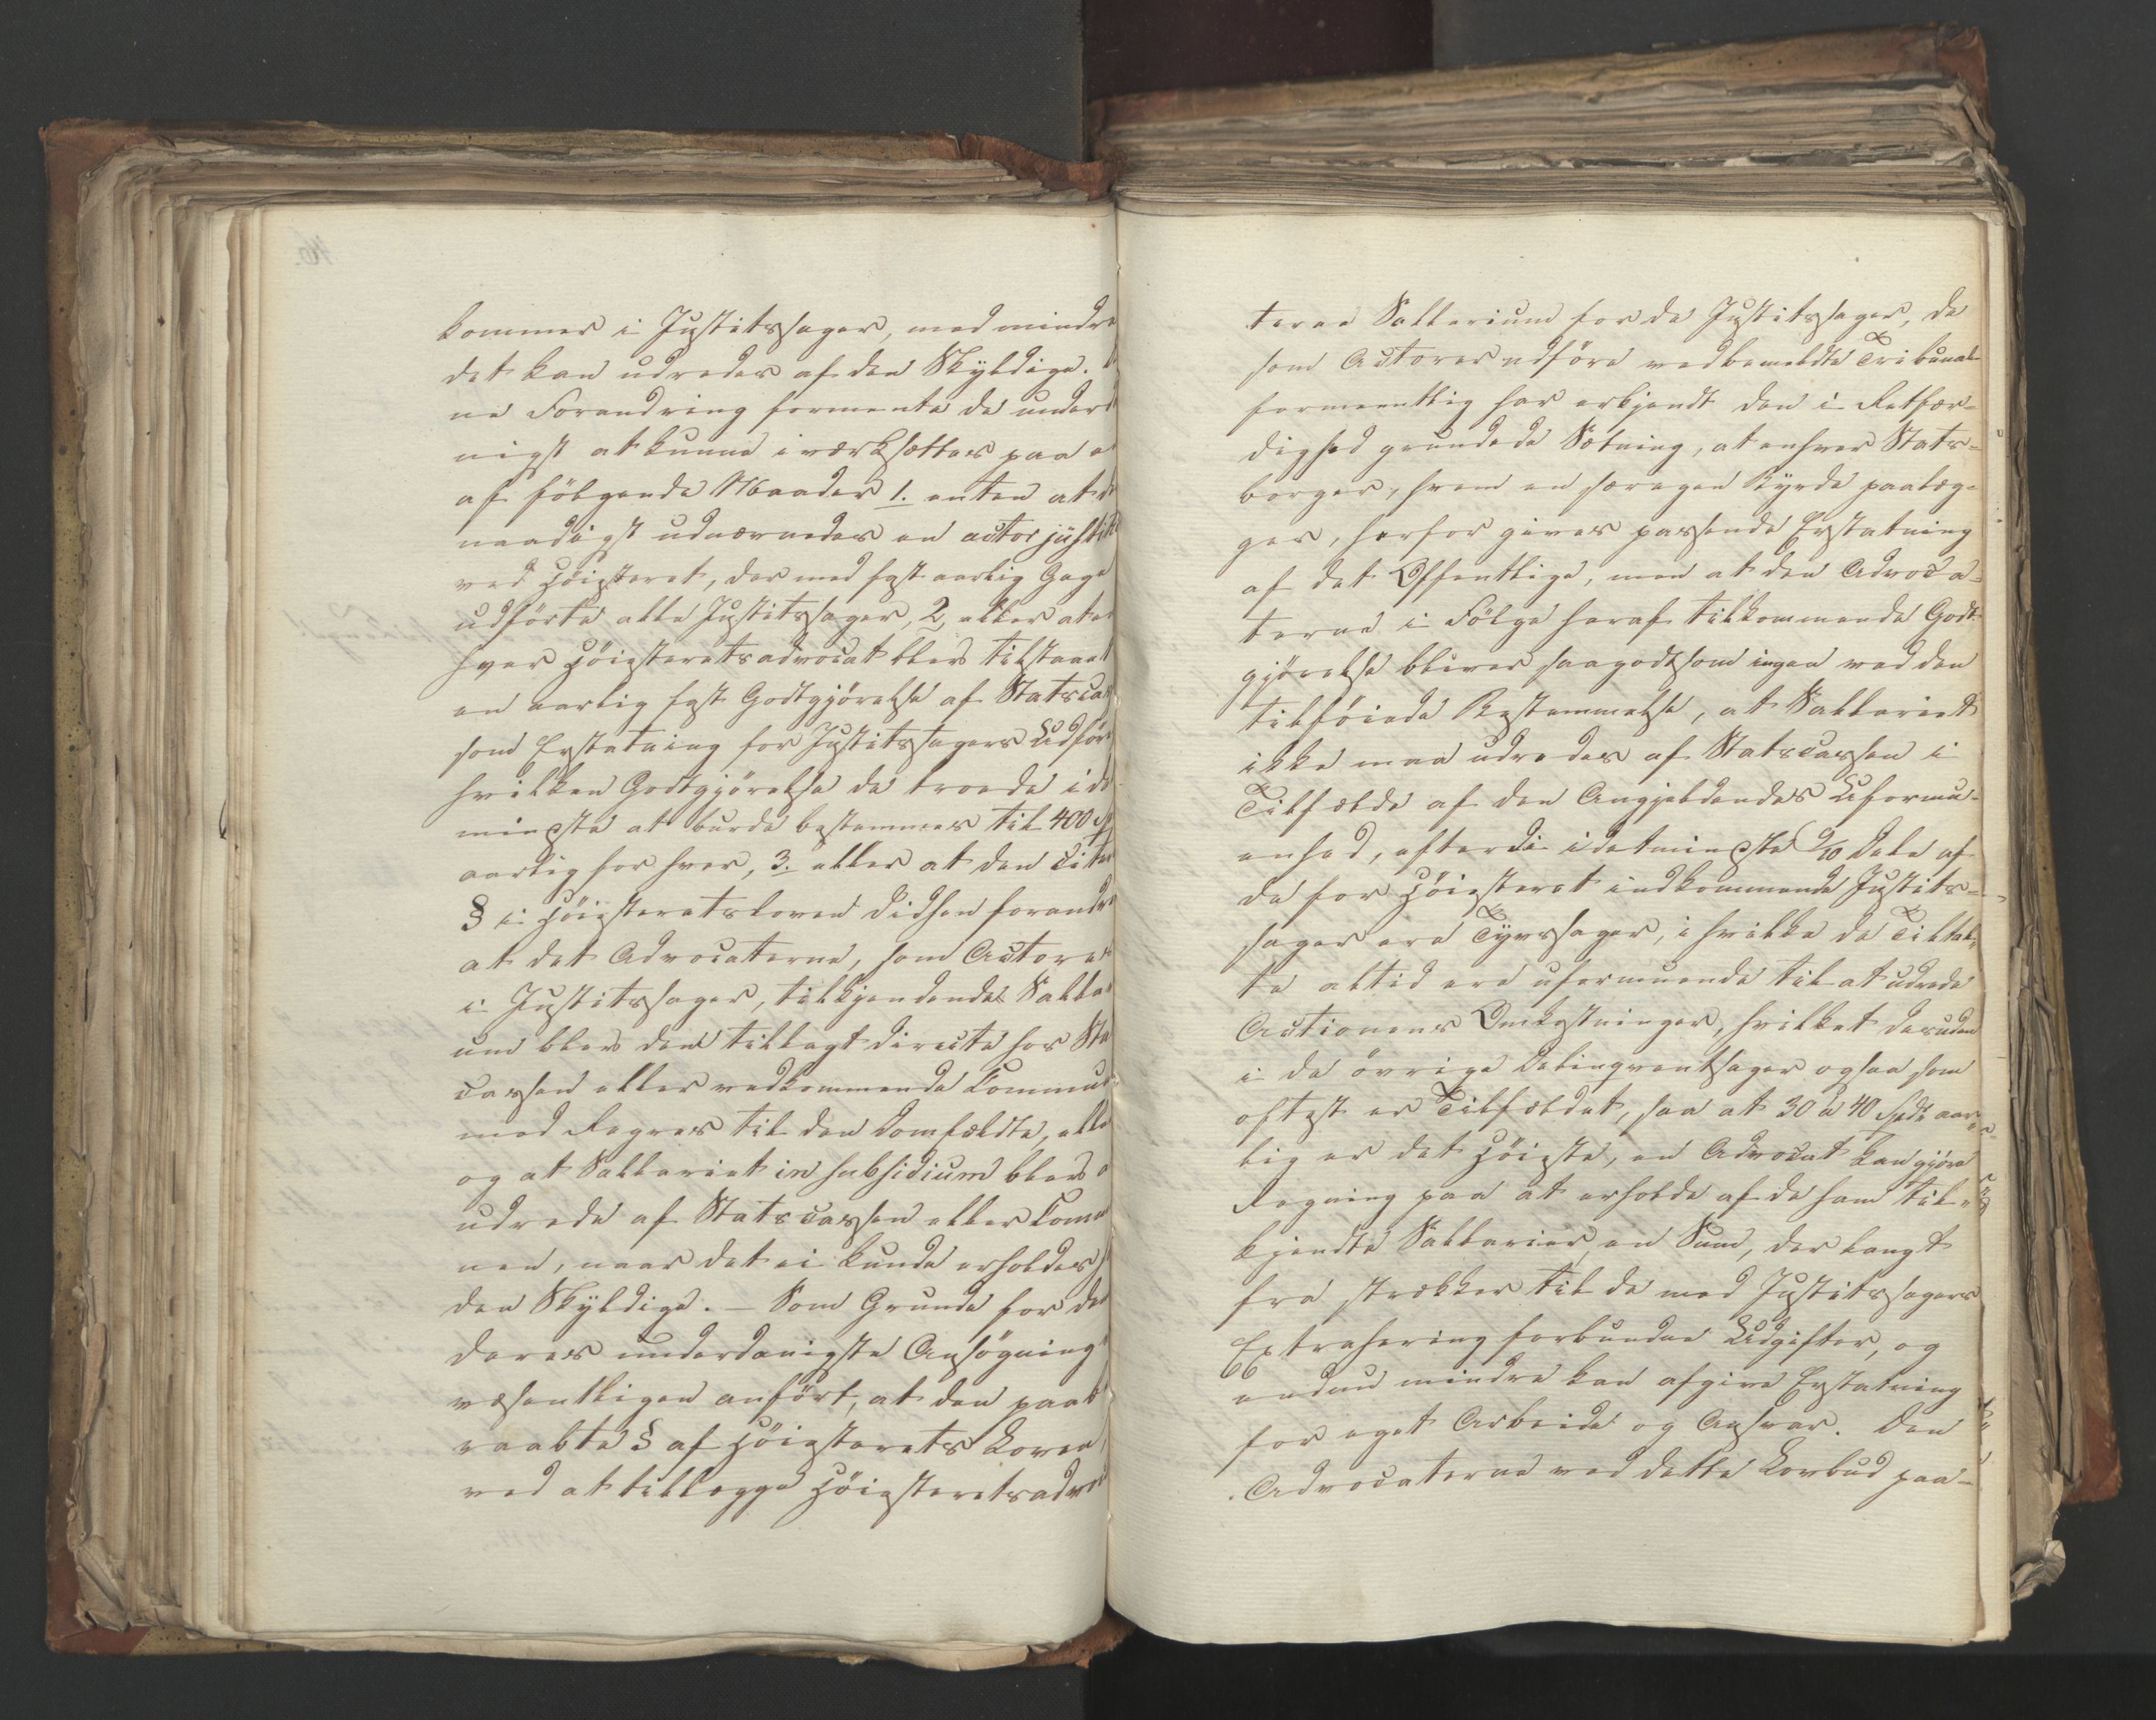 kommer i Justitssager, med mindre
det kan udredes af den Skyldige.
ne Forandring formente de under
nigst at kunne iværksættes paa
af følgende Maader 1. enten at
naadigst udnævnedes en actor justitiæ
ved Höiesteret, der med fast aarlig Gage
udförte alle Justitssager, 2, eller at en
hver Höiesteretsadvocat blev tilstaaet
en aarlig fast Godtgjörelse af Statscas
som Erstatning for Justitssagers Udför
hvilken Godtgjörelse de troede i det
mindste at burde bestemmes til 400 Sp
aarlig for hver, 3. eller at den citer
§ i Höiesteretsloven didhen forandre
at det Advocaterne, som Actorer
i Justitssager, tilkjendende Salla
um blev dem tillagt directe hos Sta
cassen eller vedkommende Commu
med Regres til den Domfældte, elle
og at Sallariet in subsidium blev
udrede af Statscassen eller Comm
nen, naar det ei kunde erholdes h
den Skyldige. – Som Grunde for de
deres underdanigste Ansögning
væsentligen anfört, at den paab
raabte § af Höiesterets Loven,
ved at tillægge Höiesteretsadvo
terne Sallarium for de Justitssager, de
som Actorer udföre ved bemeldte Tribunal
formeentlig har erkjendt den i Retfær-
dighed grundede Sætning, at enhver Stats-
borger, hvem en særegen Byrde paalæg-
ges, herfor gives passende Erstatning
af det Offentlige, men at den Advoca-
terne i Fölge heraf tilkommende Godt-
gjörelse bliver saagodtsom ingen ved den
tilföiede Bestemmelse, at Sallariet
ikke maa udredes af Statscassen i
Tilfælde af den Angjeldendes Uformu-
enhed, efterdi idetmindste 9/10 Dele af
de for Höiesteret indkommende Justits-
sager ere Tyvssager, i hvilke de Tiltal-
te altid ere uformuende til at udrede
Actionens Omkostninger, hvilket desuden
i de övrige Delinqventsager ogsaa som
oftest er Tilfældet, saa at 30 à 40 Spd aar-
lig er det Höieste, en Advocat kan gjöre
Regning paa at erholde af de ham til-
kjendte Sallarier, en Sum, der langt
fra strækker til de med Justitssagers
Extrahering forbundne Udgifter, og
endnu mindre kan afgive Erstatning
for eget Arbeide og Ansvar. Den
Advocaterne ved dette Lovbud paa-